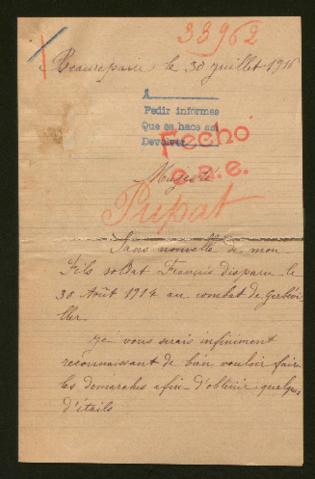 33962
Beaurepaire le 30 juillet 1916
A
Pedir informes
Que se hace así
Devolver
Fecho
e.R.e.
Majesté
Pupat
Sans nouvelle de mon
Fils soldat Français disparu le
30 Août 1914 au combat de Gerbévi
ller.
Je vous serais infiniment
reconnaissant de bien vouloir faire
les demarches afin d'obtenir quelques
d'étails